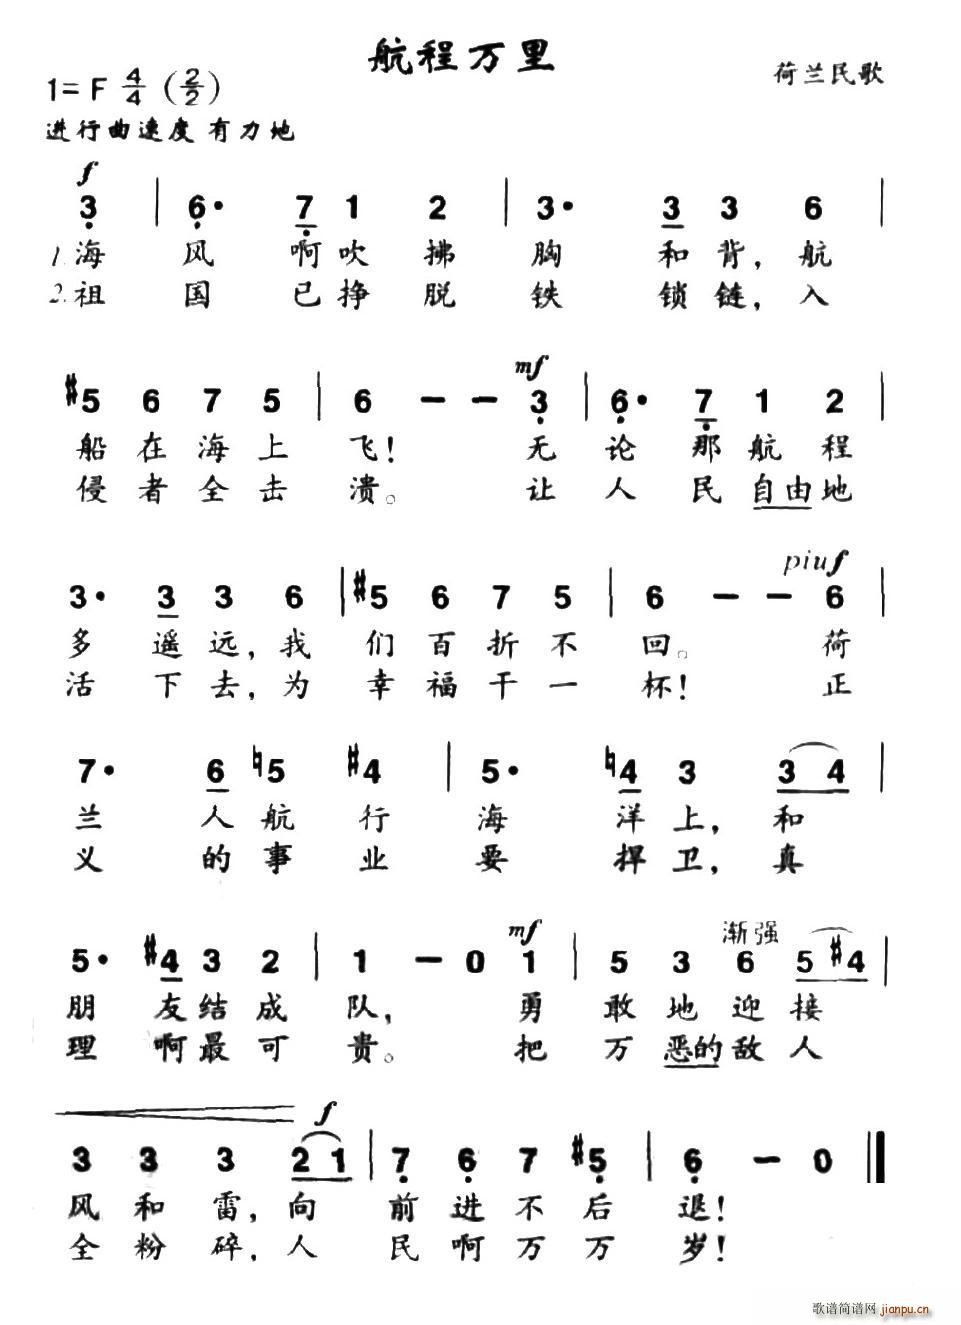 航程万里
荷兰民歌
1= F 4/4 (2/2)
进行曲速度 有力地
f
3 | 6· 7 1 2 | 3· 3 3 6 |
1.海 风 啊吹 拂 胸 和 背, 航
2.祖 国 已挣 脱 铁 锁 链, 入
mf
#5 6 7 5 | 6 – – 3 | 6· 7 1 2 |
船 在 海 上 飞! 无 论 那 航 程
侵 者 全 击 溃。 让 人 民 自由 地
piuf
3· 3 3 6 | #5 6 7 5 | 6 – – 6 |
多 遥 远, 我 们 百 折 不 回。 荷
活 下 去, 为 幸 福 干 一 杯! 正
7· 6 ♮5 #4 | 5· ♮4 3 3 4 |
兰 人 航 行 海 洋 上, 和
义 的 事 业 要 捍 卫, 真
mf 渐强
5· #4 3 2 | 1 – 0 1 | 5 3 6 5 #4 |
朋 友 结 成 队, 勇 敢 地 迎 接
理 啊 最 可 贵。 把 万 恶的 敌 人
f
3 3 3 2 1 | 7 6 7 #5 | 6 – 0 ‖
风 和 雷, 向 前 进 不 后 退!
全 粉 碎, 人 民 啊 万 万 岁!
歌谱简谱网 jianpu.cn